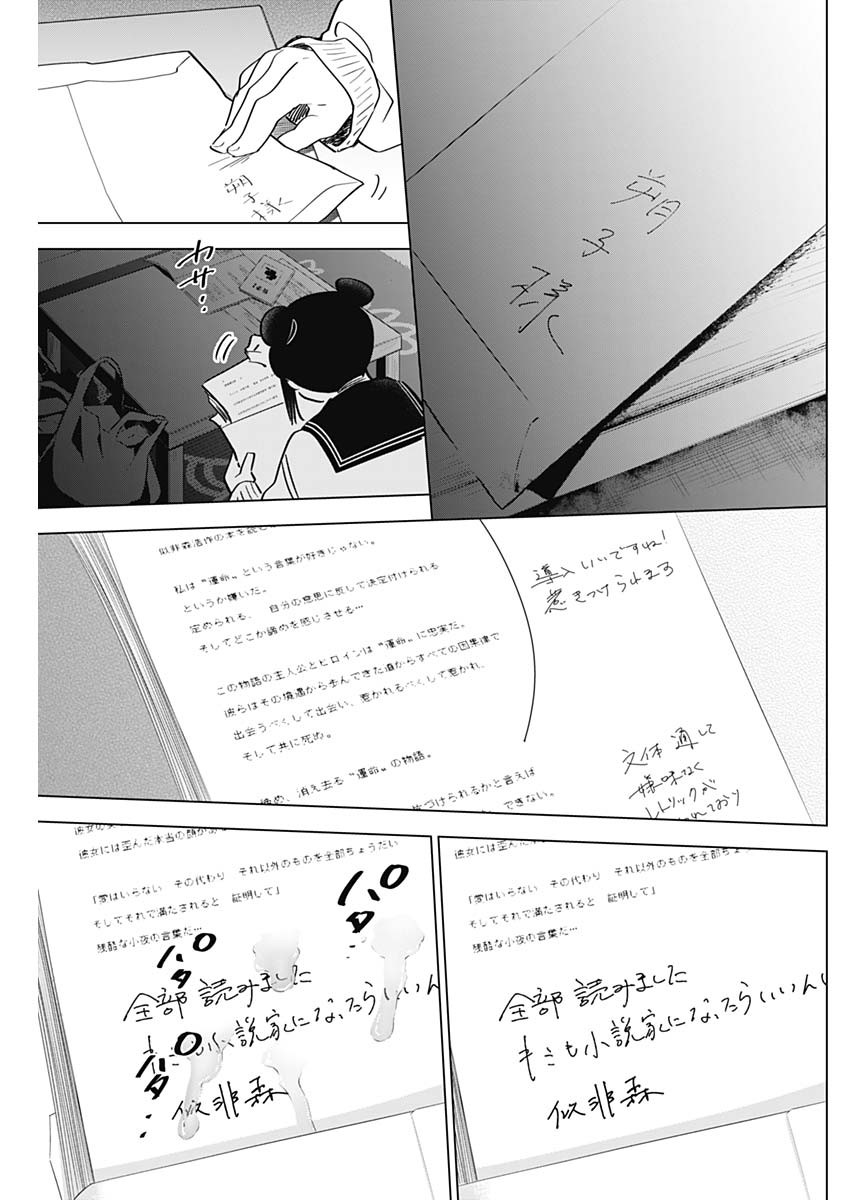 朔子様
朔子様
ガサ…
似非森浩作の本を読む
私は“運命„という言葉が好きじゃない。
というか嫌いだ。
定められる、　自分の意思に反して決定付けられる
そしてどこか諦めを感じさせる…
この物語の主人公とヒロインは“運命„に忠実だ。
彼らはその境遇から歩んできた道からすべての因果律で
出会うべくして出会い、惹かれるべくして惹かれ、
そして共に死ぬ。
諦め、消え去る“運命„の物語。
づけられるかと言えば
できない。
導入いいですね!
惹きつけられます
文体通して
嫌味なく
レトリックが
れており
彼女には歪んだ本
「愛はいらない　その代わり　それ以外のものを全部ちょ
そしてそれで満たされると　証明して」
残酷な小夜の言葉だ…
全部読みました
キミも小説家になったらいいん
似非森
彼女には歪んだ本当の顔があ
「愛はいらない　その代わり　それ以外のものを全部ちょうだい
そしてそれで満たされると　証明して」
残酷な小夜の言葉だ…
全部読みました
キミも小説家になったらいいん
似非森
パタ
パタ
パタ…